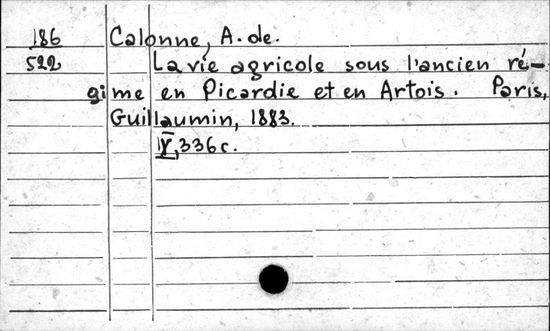 186 Calonne, A. de.
522 La vie agricole sous l'ancien ré-
gime en Picardie et en Artois. Paris,
Guillaumin, 1883.
IV, 336 c.